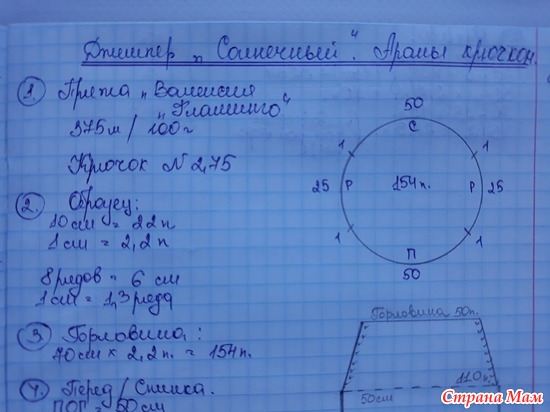 Джемпер „Солнечный“. Араны крючком.
1. Пряжа „Валенсия
„Фламинго“
375м / 100г
Крючок N 2,75
2. Образец:
10см = 22п
1см = 2,2п
8 рядов = 6 см
1см = 1,3 ряда
3. Горловина:
70см × 2,2п. = 154п.
4. Перед / Спинка.
ПОГ = 50см
50
С
1
1
25
Р
154п.
Р
25
1
1
П
50
Горловина 50п.
110п.
50см
Страна Мам